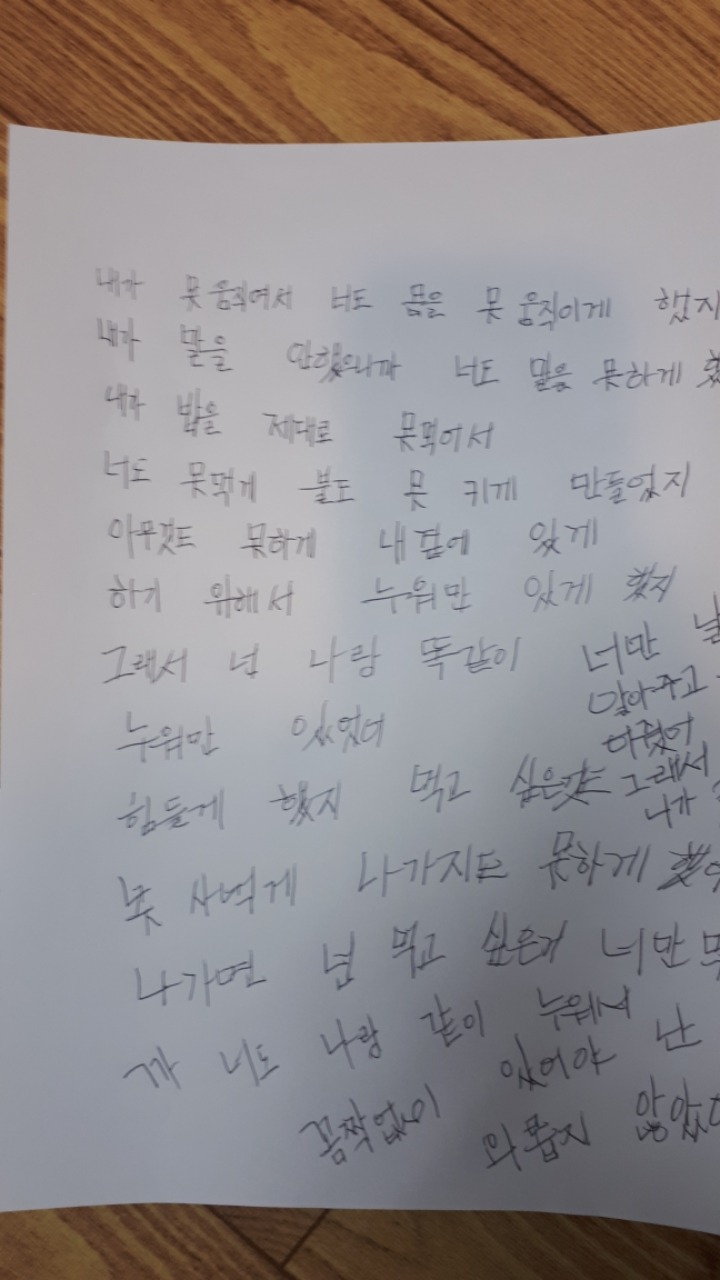 내가 못 움직여서 너도 몸을 못 움직이게 했지
내가 말을 안했으니까 너도 말을 못하게
내가 밥을 제대로 못먹어서
너도 못먹게 불도 못 키게 만들었지
아무것도 못하게 내 곁에 있게
하기 위해서 누워만 있게 했지
그래서 넌 나랑 똑같이
누워만 있었어
너만
맡아주고
그래서
나가
힘들게 했지 먹고 싶은것도
못 사먹게 나가지도 못하게
나가면 넌 먹고 싶은거 너만
까 너도 나랑 같이 누워서
꼼짝없이 있어야 난
외롭지